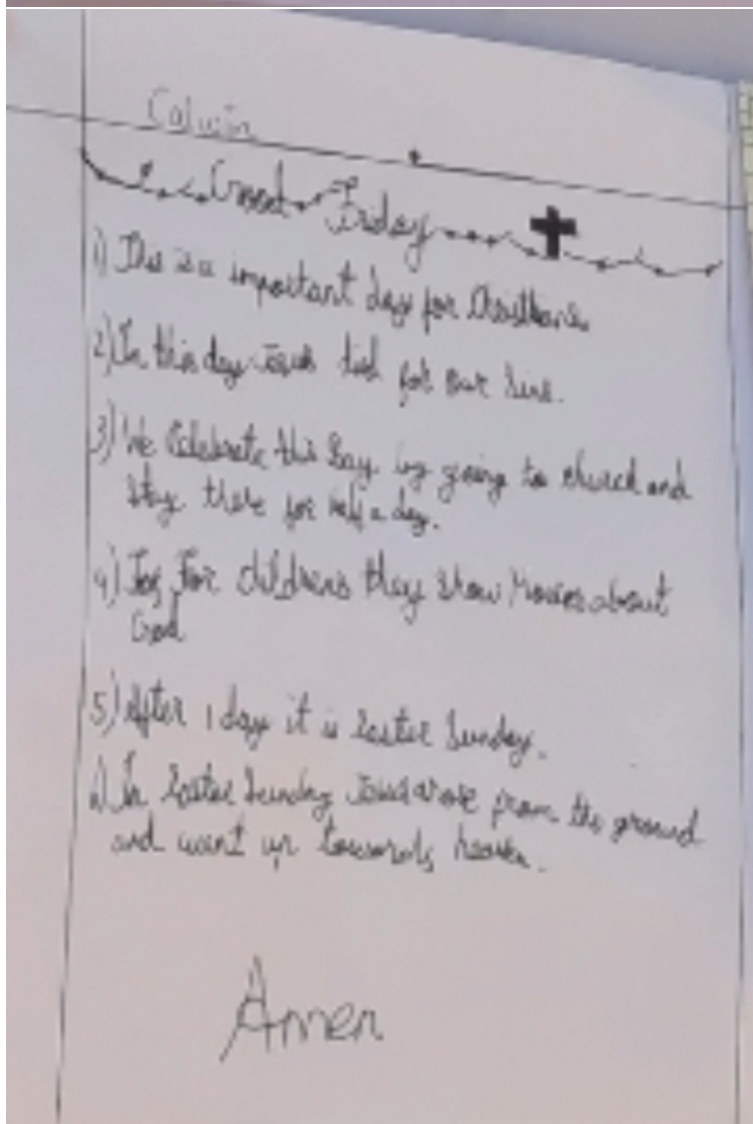 Calwin
Good Friday
1) This is a important day for Christians.
2) In this day Jesus died for our Sins.
3) We Celebrate this Day by going to church and
stay there for half a day.
4) For childrens they show Movies about
God
5) After 1 day it is Easter Sunday.
6) In Easter Sunday Jesus arose from the ground
and went up towards heaven.
Amen